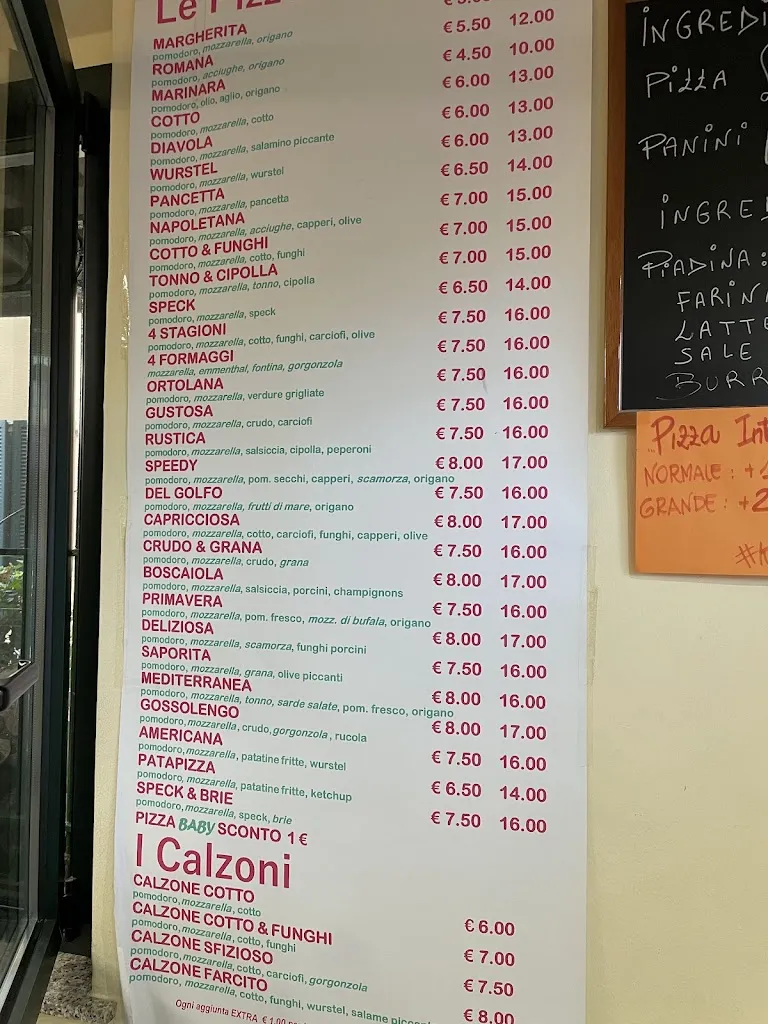 Le Pizz
MARGHERITA
pomodoro, mozzarella, origano
ROMANA € 5.50 12.00
pomodoro, acciughe, origano
MARINARA € 4.50 10.00
pomodoro, olio, aglio, origano
COTTO € 6.00 13.00
pomodoro, mozzarella, cotto
DIAVOLA € 6.00 13.00
pomodoro, mozzarella, salamino piccante
WURSTEL € 6.00 13.00
pomodoro, mozzarella, wurstel
PANCETTA € 6.50 14.00
pomodoro, mozzarella, pancetta
NAPOLETANA € 7.00 15.00
pomodoro, mozzarella, acciughe, capperi, olive
COTTO & FUNGHI € 7.00 15.00
pomodoro, mozzarella, cotto, funghi
TONNO & CIPOLLA € 7.00 15.00
pomodoro, mozzarella, tonno, cipolla
SPECK € 6.50 14.00
pomodoro, mozzarella, speck
4 STAGIONI € 7.50 16.00
pomodoro, mozzarella, cotto, funghi, carciofi, olive
4 FORMAGGI € 7.50 16.00
mozzarella, emmenthal, fontina, gorgonzola
ORTOLANA € 7.50 16.00
pomodoro, mozzarella, verdure grigliate
GUSTOSA € 7.50 16.00
pomodoro, mozzarella, crudo, carciofi
RUSTICA € 7.50 16.00
pomodoro, mozzarella, salsiccia, cipolla, peperoni
SPEEDY € 8.00 17.00
pomodoro, mozzarella, pom. secchi, capperi, scamorza, origano
DEL GOLFO € 7.50 16.00
pomodoro, mozzarella, frutti di mare, origano
CAPRICCIOSA € 8.00 17.00
pomodoro, mozzarella, cotto, carciofi, funghi, capperi, olive
CRUDO & GRANA € 7.50 16.00
pomodoro, mozzarella, crudo, grana
BOSCAIOLA € 8.00 17.00
pomodoro, mozzarella, salsiccia, porcini, champignons
PRIMAVERA € 7.50 16.00
pomodoro, mozzarella, pom. fresco, mozz. di bufala, origano
DELIZIOSA € 8.00 17.00
pomodoro, mozzarella, scamorza, funghi porcini
SAPORITA € 7.50 16.00
pomodoro, mozzarella, grana, olive piccanti
MEDITERRANEA € 8.00 16.00
pomodoro, mozzarella, tonno, sarde salate, pom. fresco, origano
GOSSOLENGO € 8.00 17.00
pomodoro, mozzarella, crudo, gorgonzola, rucola
AMERICANA € 7.50 16.00
pomodoro, mozzarella, patatine fritte, wurstel
PATAPIZZA € 6.50 14.00
pomodoro, mozzarella, patatine fritte, ketchup
SPECK & BRIE € 7.50 16.00
pomodoro, mozzarella, speck, brie
PIZZA BABY SCONTO 1 €
I Calzoni
CALZONE COTTO € 6.00
pomodoro, mozzarella, cotto
CALZONE COTTO & FUNGHI € 7.00
pomodoro, mozzarella, cotto, funghi
CALZONE SFIZIOSO € 7.50
pomodoro, mozzarella, cotto, carciofi, gorgonzola
CALZONE FARCITO € 8.00
pomodoro, mozzarella, cotto, funghi, wurstel, salame piccan
Ogni aggiunta EXTRA € 1.00
INGREDI
PIZZA
PANINI
INGRE
PIADINA:
FARIN
LATTE
SALE
BURR
Pizza Int
NORMALE: +
GRANDE: +2